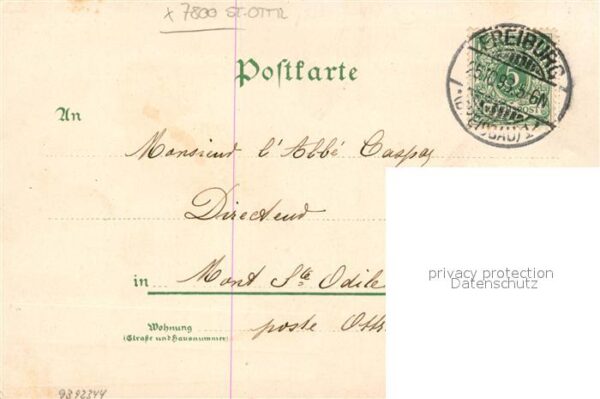 x 7800 ST. OTTR
Postkarte
FREIBURG
5.10.99. 5-6N
(BREISGAU) 1
An
Monsieur l'Abbé Caspar
Directeur
in Mont Ste Odile
Wohnung
(Straße und Hausnummer)
poste Ott
privacy protection
Datenschutz
9392344